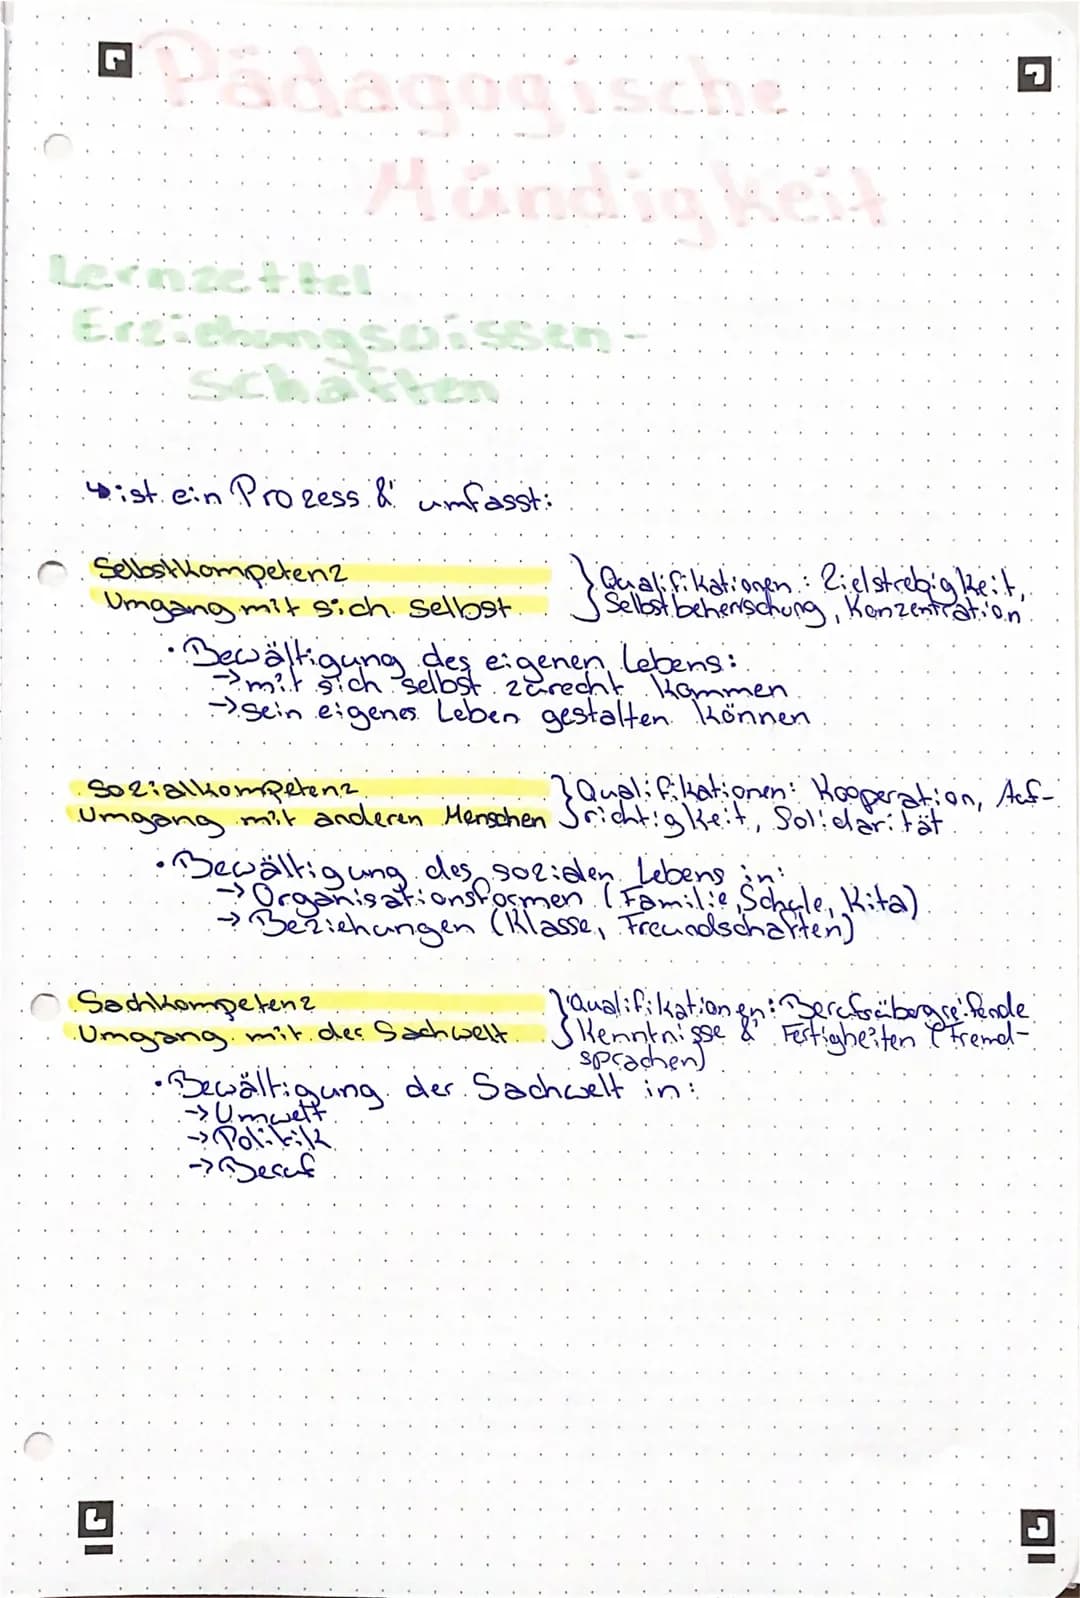 Pädagogische
Mündigkeit
Lernzettel
Erziehungswissen-
schaften
↳ ist ein Prozess & umfasst:
Selbstkompetenz
Umgang mit sich selbst
} Qualifikationen: Zielstrebigkeit,
Selbstbeherrschung, Konzentration
• Bewältigung des eigenen Lebens:
→ mit sich selbst zurecht kommen
→ sein eigenes Leben gestalten können
Sozialkompetenz
Umgang mit anderen Menschen
} Qualifikationen: Kooperation, Auf-
richtigkeit, Solidarität
• Bewältigung des sozialen Lebens in:
→ Organisationsformen (Familie, Schule, Kita)
→ Beziehungen (Klasse, Freundschaften)
Sachkompetenz
Umgang mit der Sachwelt
} Qualifikationen: Berufsübergreifende
Kenntnisse & Fertigkeiten (Fremd-
sprachen)
• Bewältigung der Sachwelt in:
→ Umwelt
→ Politik
→ Beruf